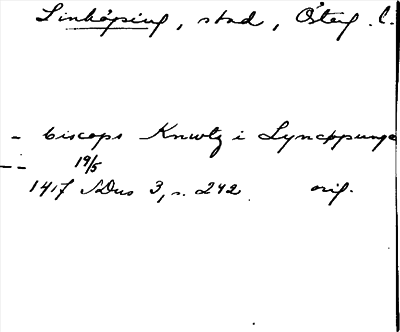 Linköping, stad, Österg. l.
- biscops Knwtz i Lyncøpunge
-- 19/5
1417 SDns 3, s. 242. orig.